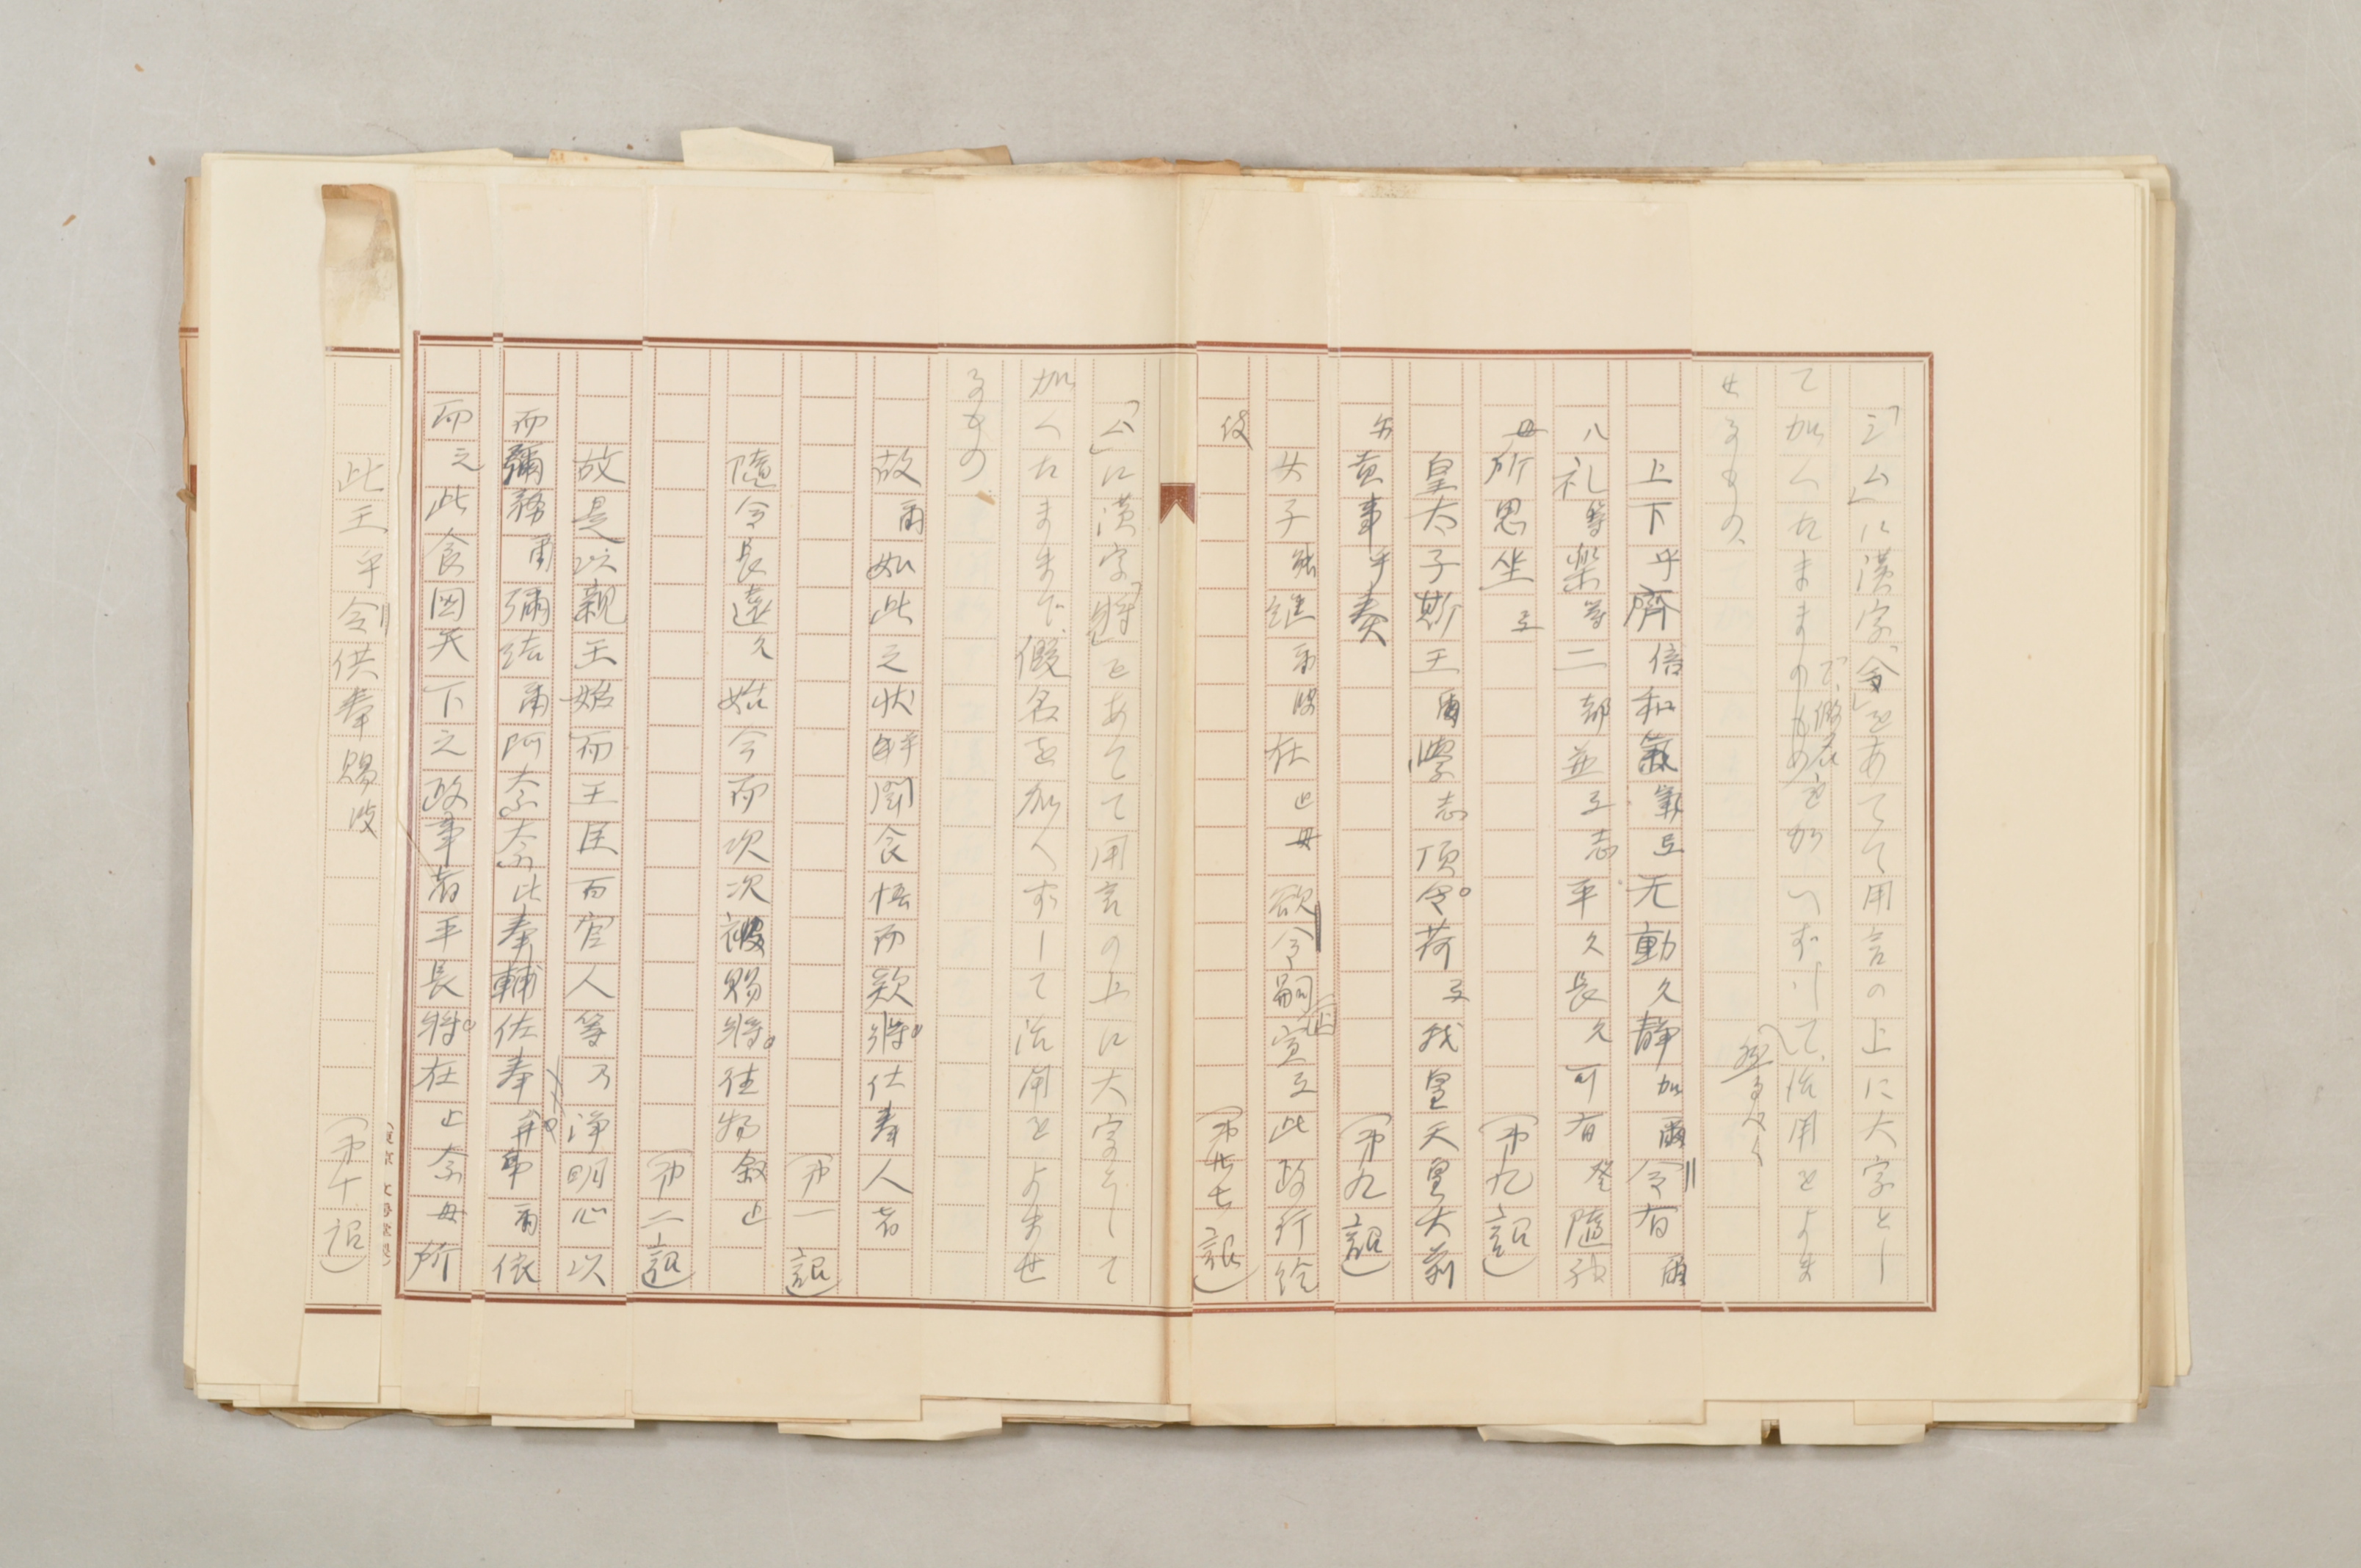 「シム」に漢字「令」をあてて用言の上に大字とし
て加へたままので、假名をかへずして、活用をよま
せるもの、
上下乎齊倍和氣氣弖无動久静加爾令有爾
八礼等樂等二都並弖志平久長久可有登隨神
母所思坐弖
(第九詔)
皇太子斯王爾學志頂令荷弖我皇天皇大前
爾貢事乎奏
(第九詔)
女子能継爾波在止母欲令嗣宣弖此政行給
伎
(第廿七詔)
「ム」に漢字「將」をあてて用言の上に大字として
加へたままで、假名を加へずして活用をよませ
るもの
故爾如此之状聞食悟而歎將仕奉人者
(第一詔)
隨令長遠久始今而次次被賜將往物叙止
(第二詔)
故是以親王始而王臣百官人等乃淨明心以
而彌務爾彌結爾阿奈奈比奉輔佐奉牟事爾依
而之此食国天下之政事者平長將在止奈母所
此王乎令供奉賜波
(第十詔)